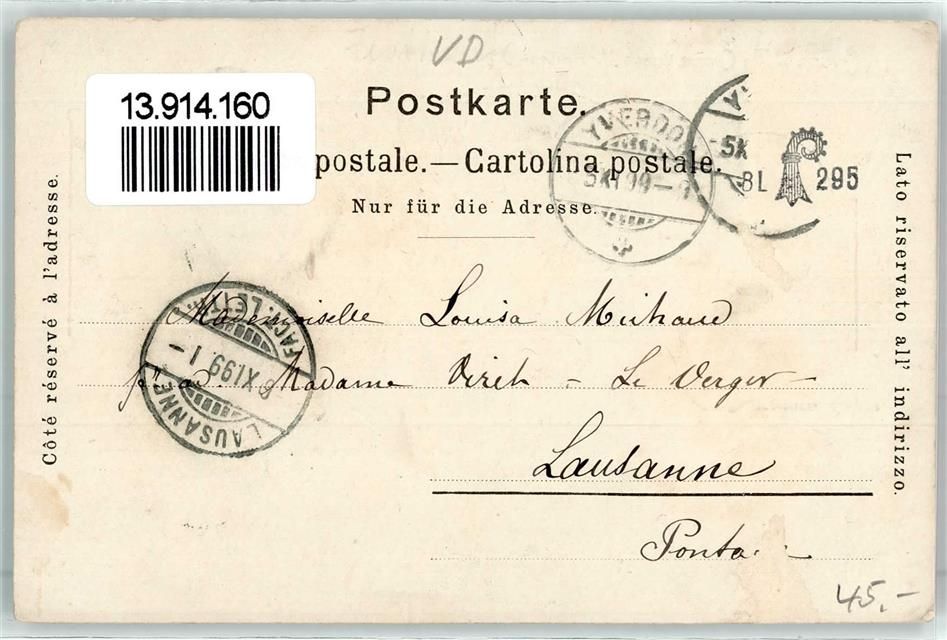 VD
13.914.160
Postkarte.
postale.—Cartolina postale.
Nur für die Adresse.
YVERDON
XI 99
BL 295
Côté réservé à l'adresse.
Lato riservato all' indirizzo.
LAUSANNE
XI.99 1-
FACT. LETTR.
Mademoiselle Louisa Michaud
Madame Viret - Le Verger -
Lausanne
45.-